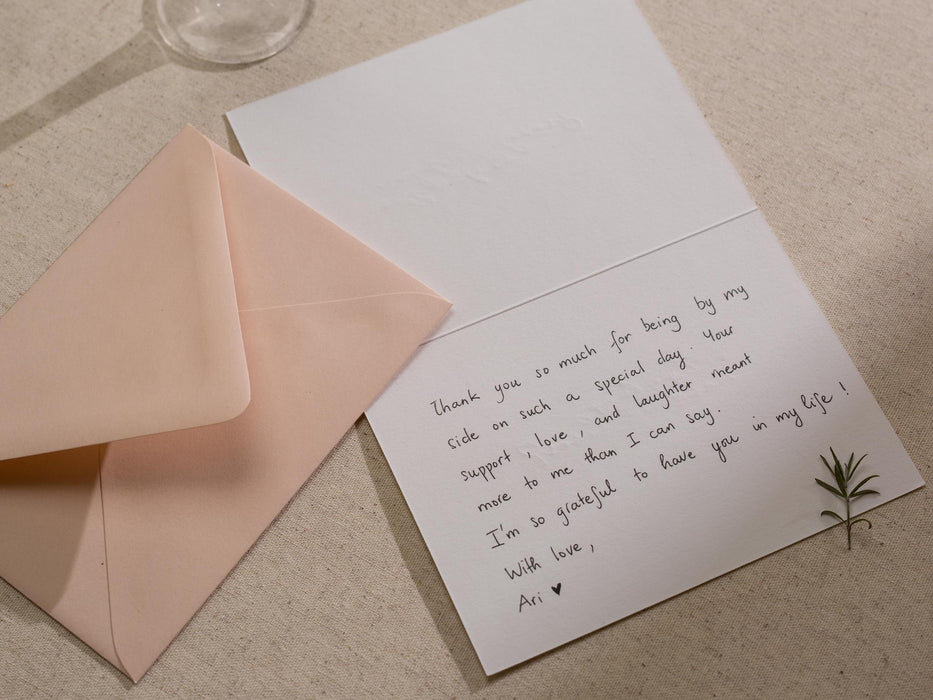 Thank you so much for being by my
side on such a special day. Your
support, love, and laughter meant
more to me than I can say.
I'm so grateful to have you in my life!
With love,
Ari ♥